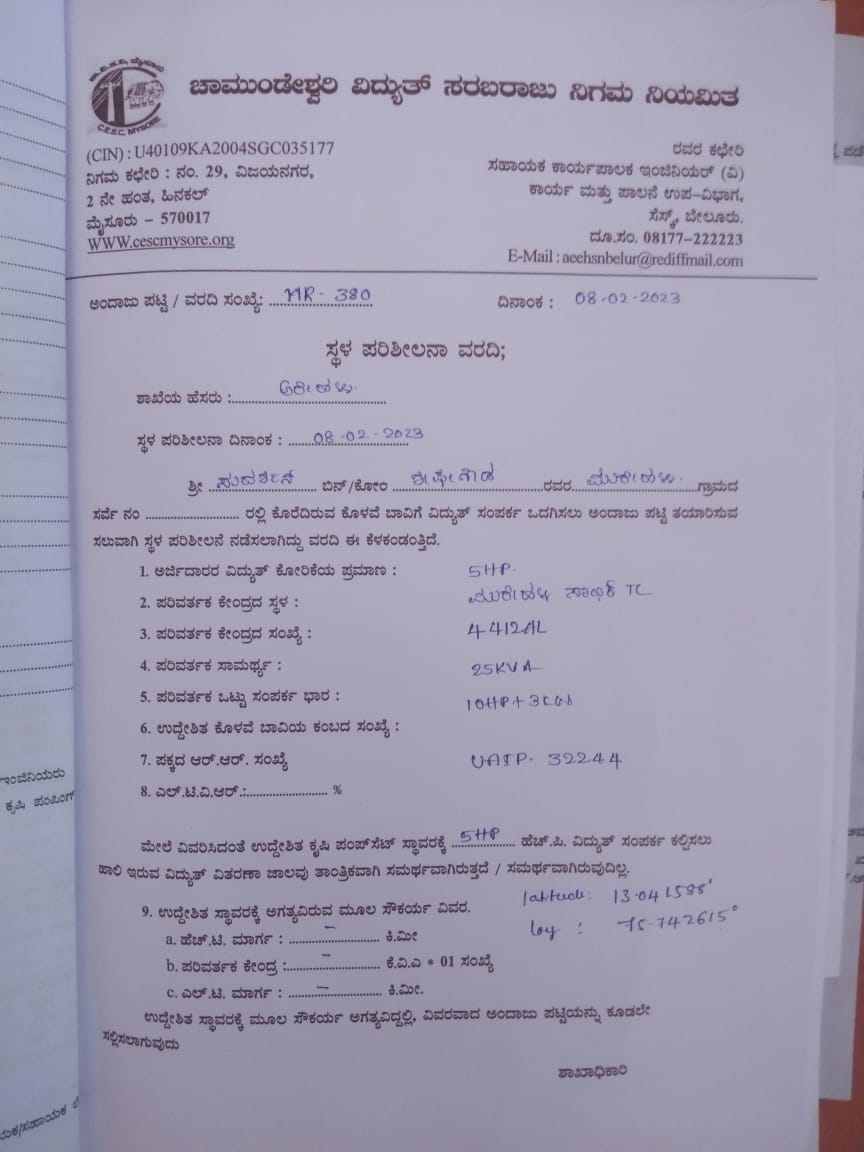 ಚಾ.ವಿ.ಸ.ನಿ. ಮೈಸೂರು
C.E.S.C. MYSORE
ಚಾಮುಂಡೇಶ್ವರಿ ವಿದ್ಯುತ್ ಸರಬರಾಜು ನಿಗಮ ನಿಯಮಿತ
(CIN) : U40109KA2004SGC035177
ನಿಗಮ ಕಛೇರಿ : ನಂ. 29, ವಿಜಯನಗರ,
2 ನೇ ಹಂತ, ಹಿನಕಲ್
ಮೈಸೂರು – 570017
WWW.cescmysore.org
ರವರ ಕಛೇರಿ
ಸಹಾಯಕ ಕಾರ್ಯಪಾಲಕ ಇಂಜಿನಿಯರ್ (ವಿ)
ಕಾರ್ಯ ಮತ್ತು ಪಾಲನೆ ಉಪ-ವಿಭಾಗ,
ಸೆಸ್ಕ್, ಬೇಲೂರು.
ದೂ.ಸಂ. 08177-222223
E-Mail : aeehsnbelur@rediffmail.com
ಅಂದಾಜು ಪಟ್ಟಿ / ವರದಿ ಸಂಖ್ಯೆ: MR - 380 ದಿನಾಂಕ : 08-02-2023
ಸ್ಥಳ ಪರಿಶೀಲನಾ ವರದಿ;
ಶಾಖೆಯ ಹೆಸರು : ಅರೇಹಳ್ಳಿ
ಸ್ಥಳ ಪರಿಶೀಲನಾ ದಿನಾಂಕ : 08-02-2023
ಶ್ರೀ ಸುದರ್ಶನ್ ಬಿನ್/ಕೋಂ ರವರ ಗ್ರಾಮದ
ಸರ್ವೆ ನಂ ........................ ರಲ್ಲಿ ಕೊರೆದಿರುವ ಕೊಳವೆ ಬಾವಿಗೆ ವಿದ್ಯುತ್ ಸಂಪರ್ಕ ಒದಗಿಸಲು ಅಂದಾಜು ಪಟ್ಟಿ ತಯಾರಿಸುವ
ಸಲುವಾಗಿ ಸ್ಥಳ ಪರಿಶೀಲನೆ ನಡೆಸಲಾಗಿದ್ದು ವರದಿ ಈ ಕೆಳಕಂಡಂತ್ತಿದೆ.
1. ಅರ್ಜಿದಾರರ ವಿದ್ಯುತ್ ಕೋರಿಕೆಯ ಪ್ರಮಾಣ : 5HP.
2. ಪರಿವರ್ತಕ ಕೇಂದ್ರದ ಸ್ಥಳ : TC
3. ಪರಿವರ್ತಕ ಕೇಂದ್ರದ ಸಂಖ್ಯೆ : 4412AL
4. ಪರಿವರ್ತಕ ಸಾಮರ್ಥ್ಯ : 25KVA
5. ಪರಿವರ್ತಕ ಒಟ್ಟು ಸಂಪರ್ಕ ಭಾರ : 10HP+3KW
6. ಉದ್ದೇಶಿತ ಕೊಳವೆ ಬಾವಿಯ ಕಂಬದ ಸಂಖ್ಯೆ :
7. ಪಕ್ಕದ ಆರ್.ಆರ್. ಸಂಖ್ಯೆ UAIP- 32244
8. ಎಲ್.ಟಿ.ವಿ.ಆರ್.:........................ %
ಮೇಲೆ ವಿವರಿಸಿದಂತೆ ಉದ್ದೇಶಿತ ಕೃಷಿ ಪಂಪ್‌ಸೆಟ್ ಸ್ಥಾವರಕ್ಕೆ 5HP ಹೆಚ್.ಪಿ. ವಿದ್ಯುತ್ ಸಂಪರ್ಕ ಕಲ್ಪಿಸಲು
ಹಾಲಿ ಇರುವ ವಿದ್ಯುತ್ ವಿತರಣಾ ಜಾಲವು ತಾಂತ್ರಿಕವಾಗಿ ಸಮರ್ಥವಾಗಿರುತ್ತದೆ / ಸಮರ್ಥವಾಗಿರುವುದಿಲ್ಲ.
9. ಉದ್ದೇಶಿತ ಸ್ಥಾವರಕ್ಕೆ ಅಗತ್ಯವಿರುವ ಮೂಲ ಸೌಕರ್ಯ ವಿವರ. latitude: 13.041588°
a. ಹೆಚ್.ಟಿ. ಮಾರ್ಗ : – ಕಿ.ಮೀ : 75.742615°
b. ಪರಿವರ್ತಕ ಕೇಂದ್ರ : – ಕೆ.ವಿ.ಎ * 01 ಸಂಖ್ಯೆ
c. ಎಲ್.ಟಿ. ಮಾರ್ಗ : – ಕಿ.ಮೀ.
ಉದ್ದೇಶಿತ ಸ್ಥಾವರಕ್ಕೆ ಮೂಲ ಸೌಕರ್ಯ ಅಗತ್ಯವಿದ್ದಲ್ಲಿ, ವಿವರವಾದ ಅಂದಾಜು ಪಟ್ಟಿಯನ್ನು ಕೂಡಲೇ
ಸಲ್ಲಿಸಲಾಗುವುದು
ಶಾಖಾಧಿಕಾರಿ
ಇಂಜಿನಿಯರು
ಕೃಷಿ ಪಂಪಿಂಗ್